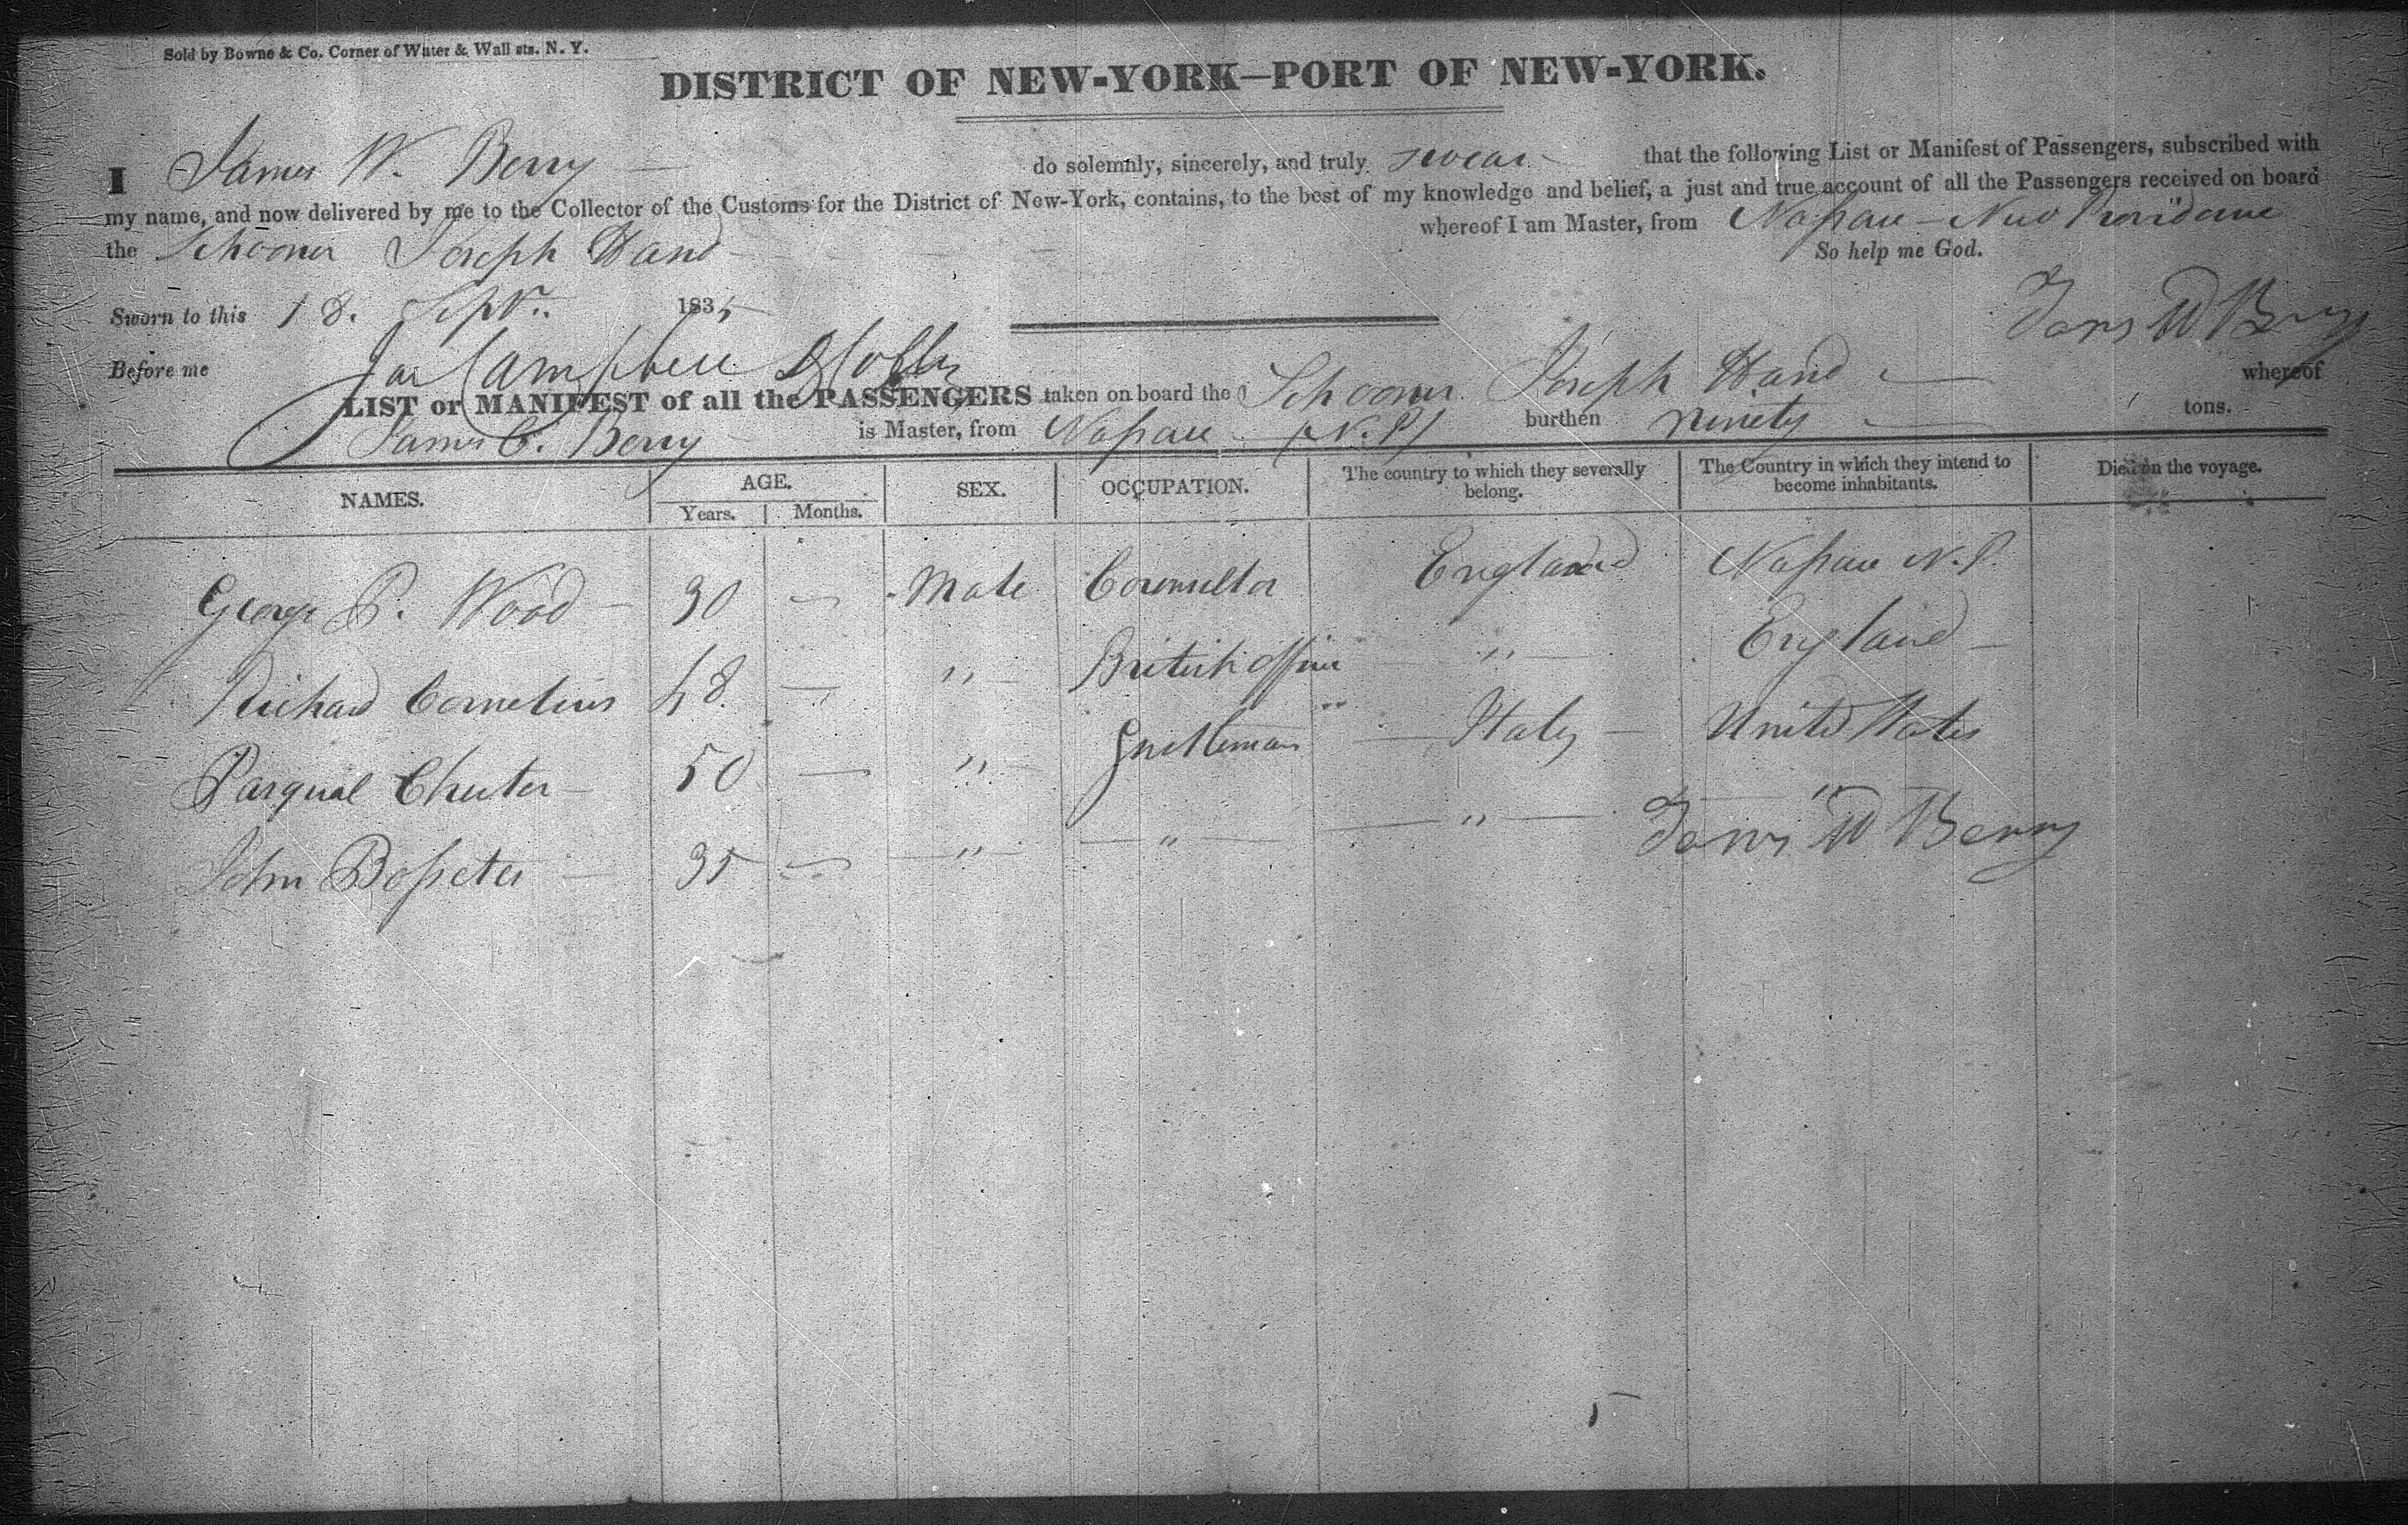 Sold by Bowne & Co. Corner of Water & Wall sts. N. Y.
DISTRICT OF NEW-YORK—PORT OF NEW-YORK.
I James W. Berry — do solemnly, sincerely, and truly swear — that the following List or Manifest of Passengers, subscribed with
my name, and now delivered by me to the Collector of the Customs for the District of New-York, contains, to the best of my knowledge and belief, a just and true account of all the Passengers received on board
the Schooner Joseph Hand whereof I am Master, from Nassau — New Providence
So help me God.
Sworn to this 18. Sepr. 1835
James W Berry
Before me Jas Campbell
LIST or MANIFEST of all the PASSENGERS taken on board the Schooner Joseph Hand — whereof
James C. Berry is Master, from Nassau (N.P) burthen ninety — tons.
NAMES. AGE. Years. Months. SEX. OCCUPATION. The country to which they severally belong. The Country in which they intend to become inhabitants. Died on the voyage.
George P. Wood — 30 — Male Counsellor England Nassau N.P.
Richard Cornelius 48. — " British Officer " England —
Pasqual Cheuter — 50 — " Gentleman — Italy — United States
John Bosseter — 35 — " " " "
James W Berry